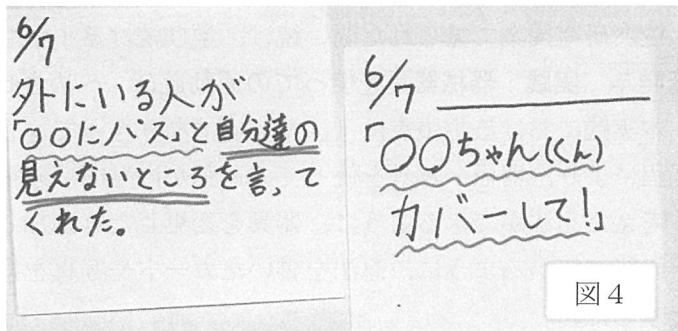 6/7
外にいる人が
「〇〇にパス」と自分達の
見えないところを言って
くれた。
6/7
「〇〇ちゃん(くん)
カバーして!」
図4